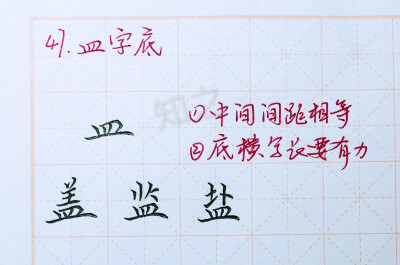 47. 皿字底
①中间间距相等
皿
②底横长要有力
盖 监 盐